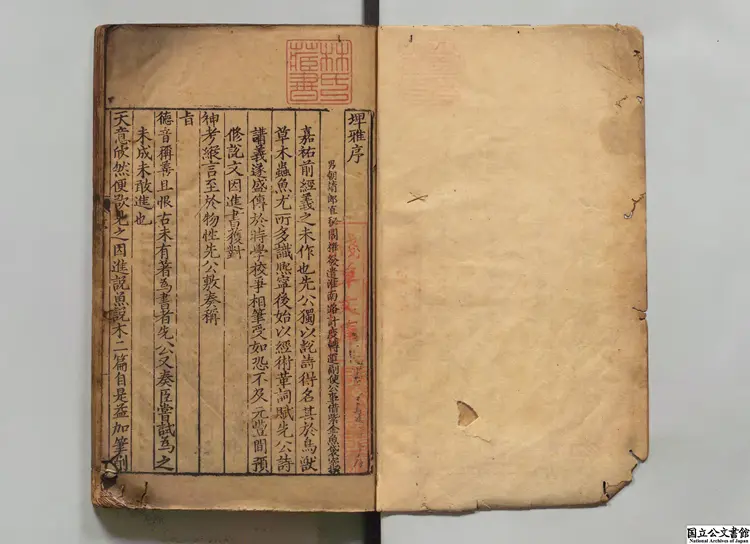 埤雅序
男朝請郎直秘閣權發遣淮南路計度轉運副使公事借紫金魚袋宰撰
嘉祐前經義之未作也先公獨以說詩得名其於鳥獸
草木蟲魚尤所多識熙寧後始以經術革詞賦先公詩
講義遂盛傳於時學校爭相筆受如恐不及元豐間預
修說文因進書獲對
神考縱言至於物性先公敷奏稱
旨
德音稱善且恨古未有著為書者先公又奏臣嘗試為之
未成未敢進也
天意欣然便欲見之因進說魚說木二篇自是益加筆削
林氏
藏書
国立公文書館
National Archives of Japan